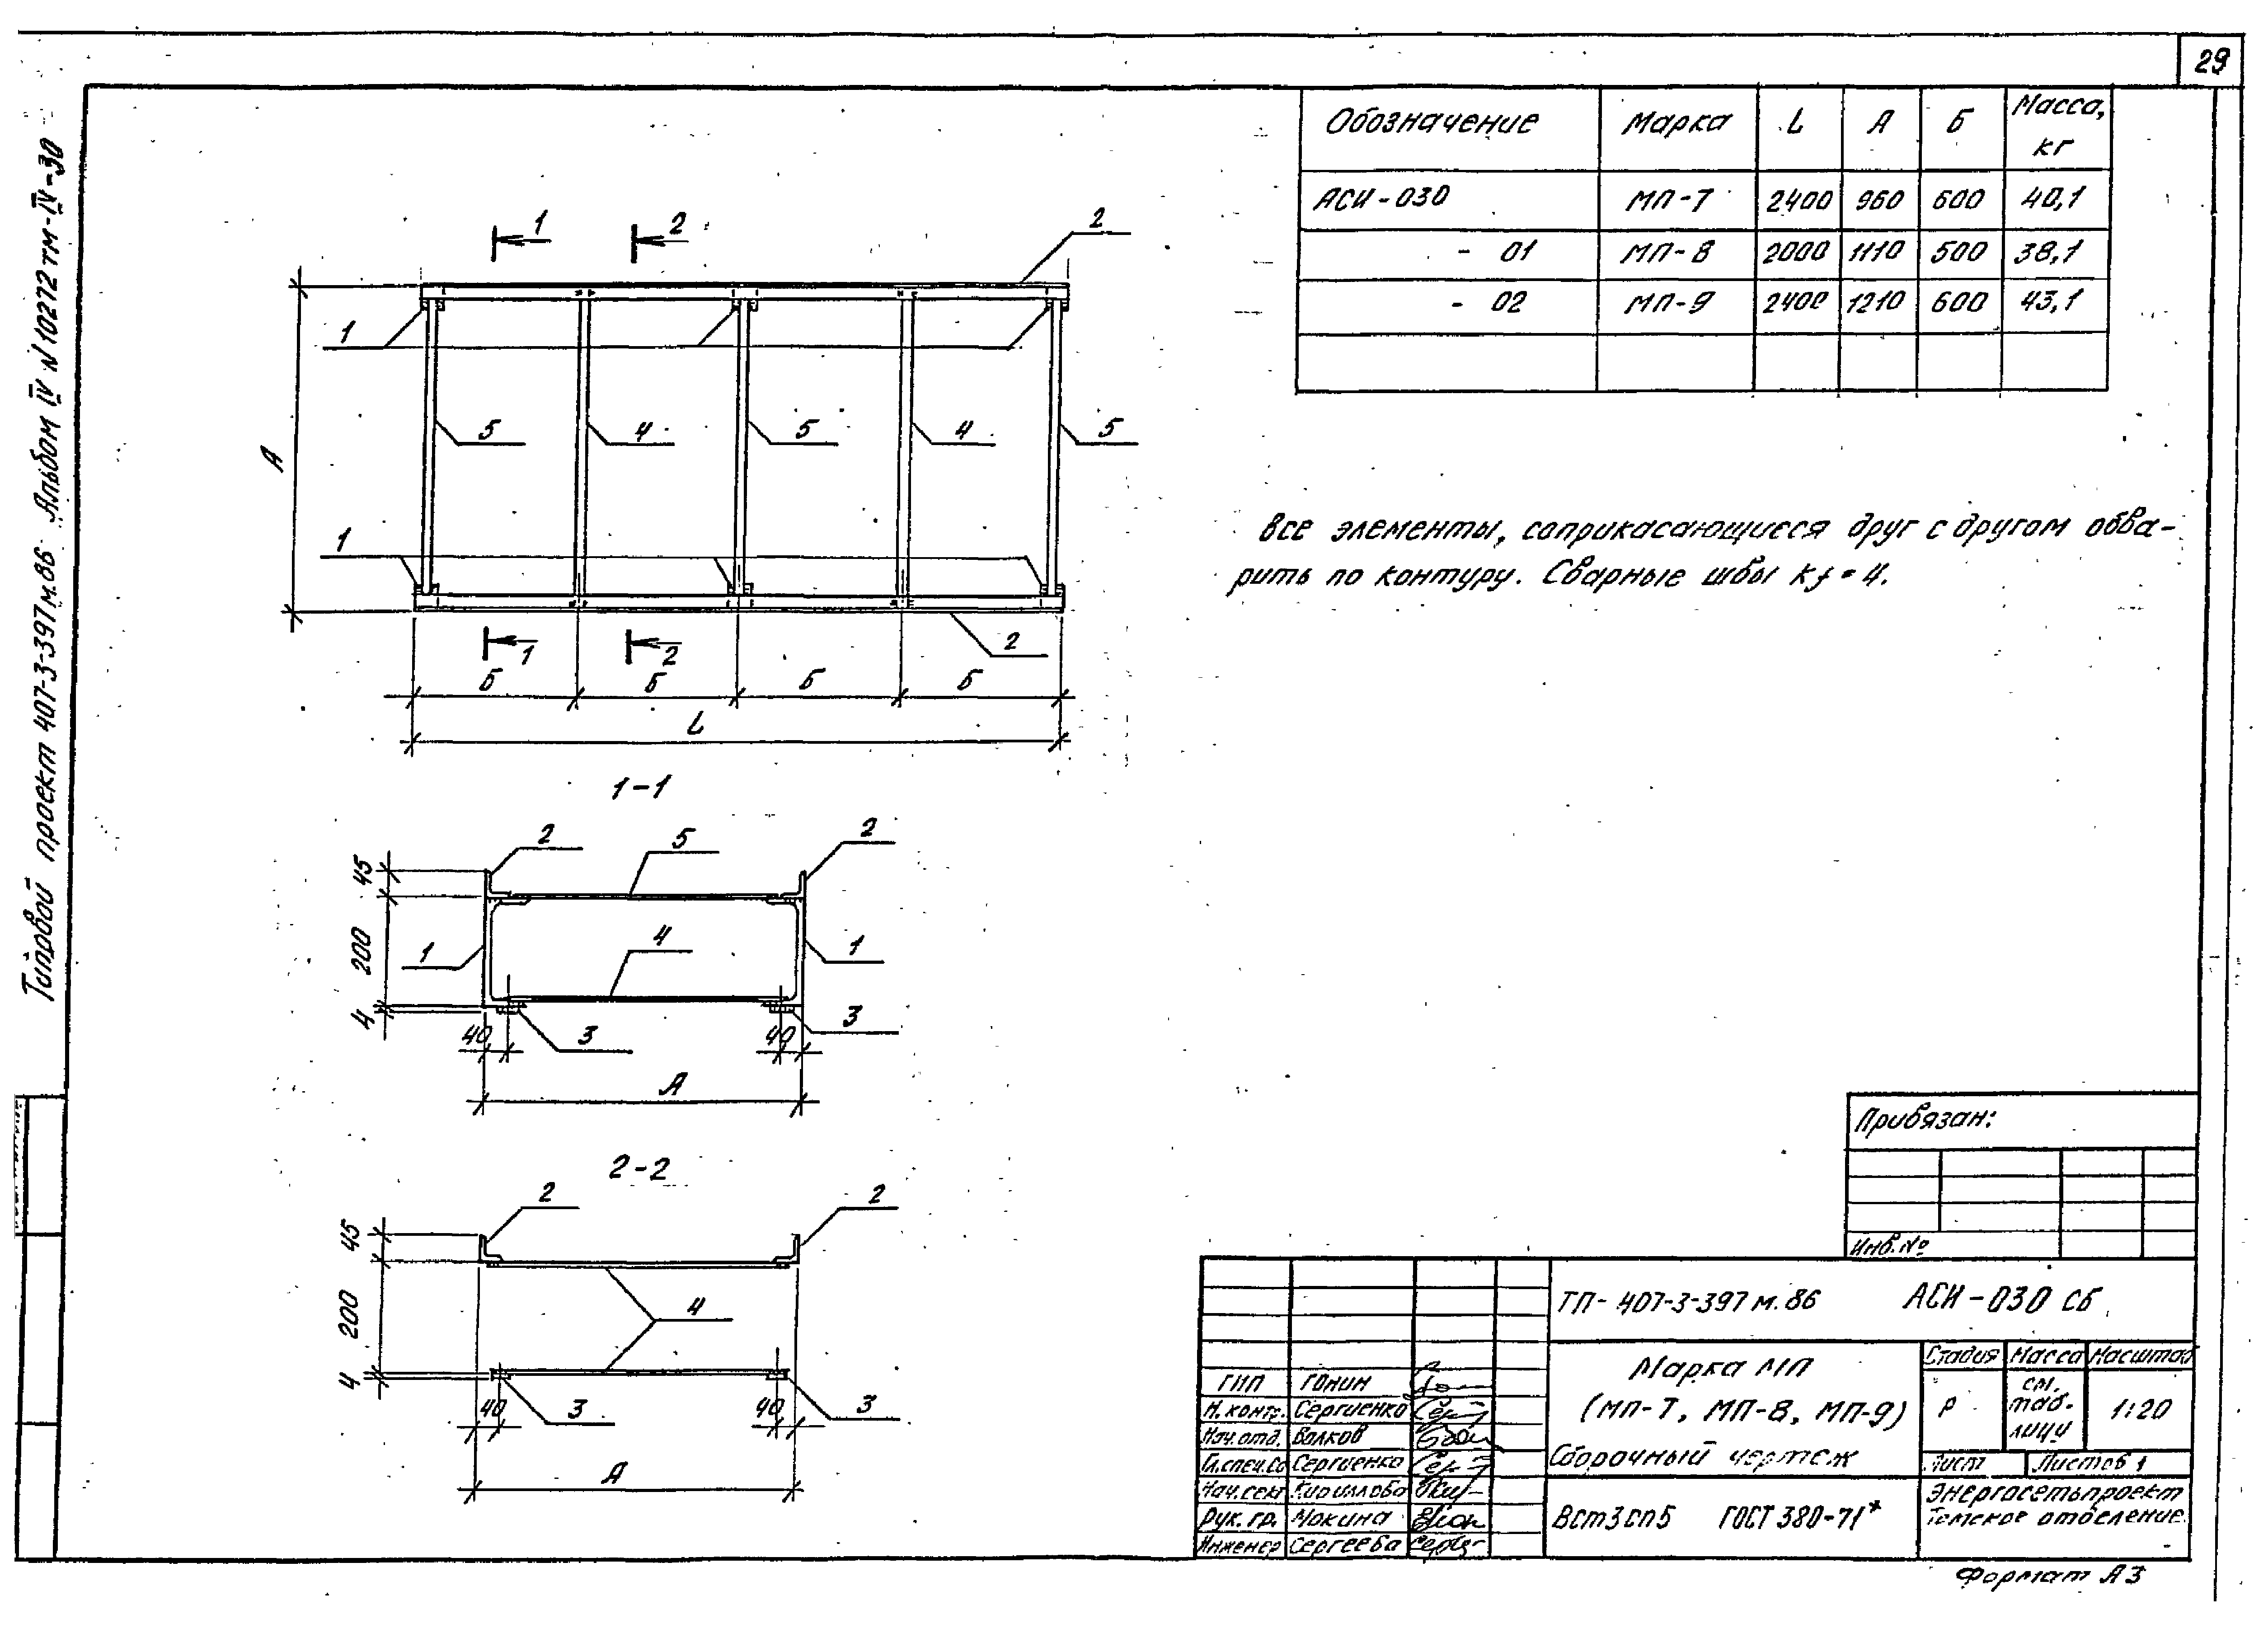 29
Типовой проект 407-3-397м.86 Альбом IV N 10272тм-IV-30
Обозначение Марка L А Б Масса, кг
АСИ-030 МП-7 2400 960 600 40,1
- 01 МП-8 2000 1110 500 38,1
- 02 МП-9 2400 1210 600 43,1
Все элементы, соприкасающиеся друг с другом обва-
рить по контуру. Сварные швы kf=4.
1 2 2
1
5 4 5 4 5
А
1
1 2 2
Б Б Б Б
L
1-1
2 5 2
45
200
4
1 4 1
40 3 40 3
А
2-2
2 2
45
200
4
4
40 3 40 3
А
Привязан:
Инв.№
ТП-407-3-397м.86 АСИ-030 СБ
Марка МП
(МП-7, МП-8, МП-9)
Сборочный чертеж
Стадия Масса Масштаб
Р см. таб-лицу 1:20
Лист Листов 1
ВСт3сп5 ГОСТ 380-71*
Энергосетьпроект
Томское отделение
ГИП Гомин
Н.контр. Сергиенко
Нач.отд. Волков
Гл.спец.Со Сергиенко
Нач.сект Кириллова
Рук.гр. Мокина
Инженер Сергеева
Формат А3